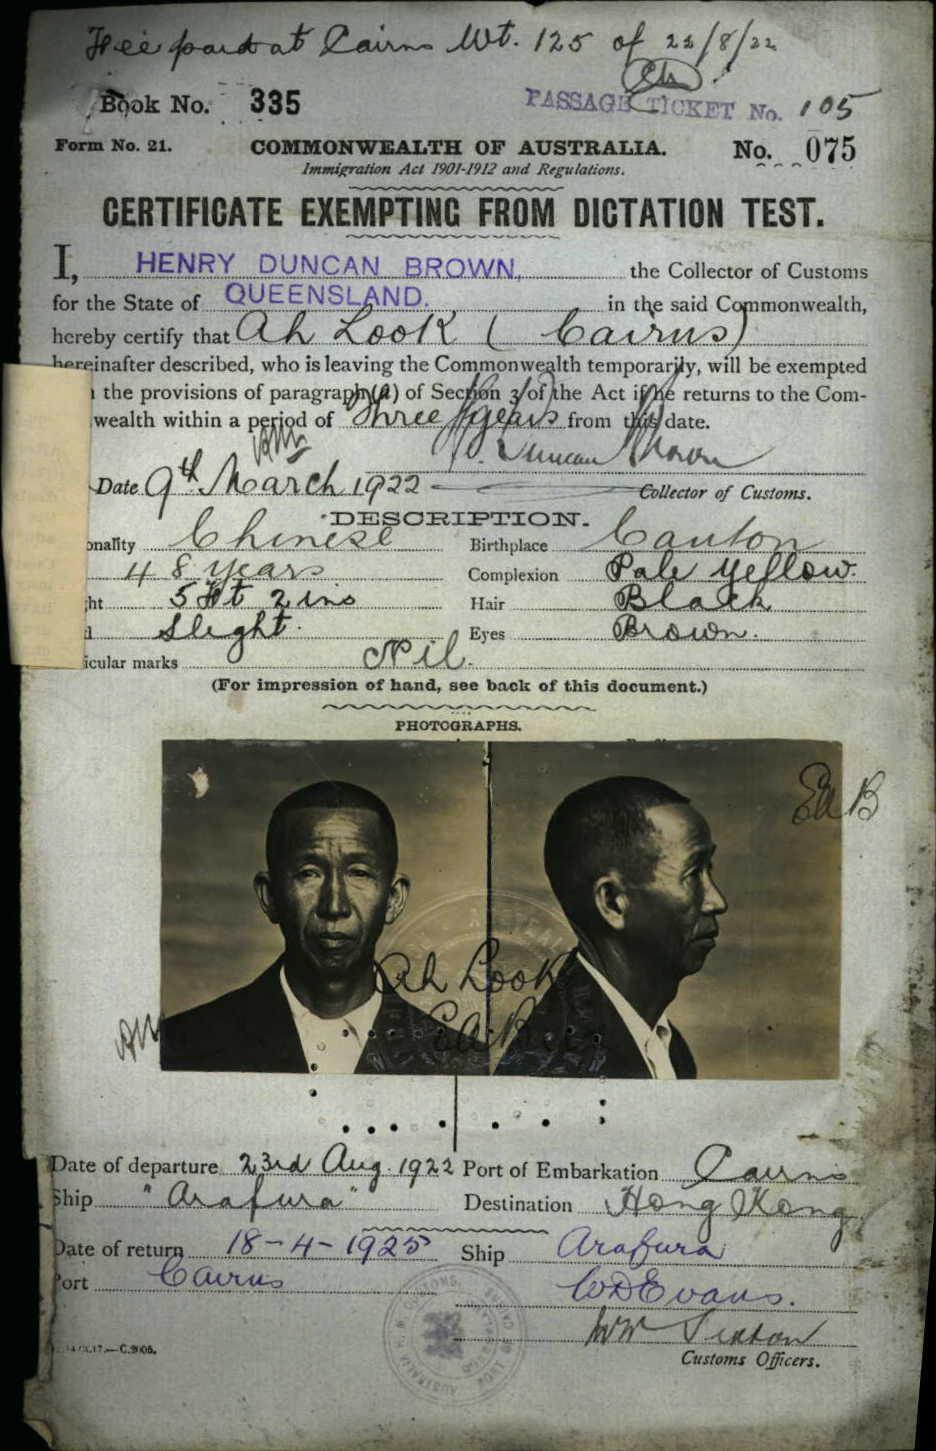 Fee paid at Cairns Wt. 125 of 22/8/22
Book No. 335
PASSAGE TICKET No. 105
Form No. 21.
COMMONWEALTH OF AUSTRALIA.
No. 075
Immigration Act 1901-1912 and Regulations.
CERTIFICATE EXEMPTING FROM DICTATION TEST.
I, HENRY DUNCAN BROWN, the Collector of Customs
for the State of QUEENSLAND. in the said Commonwealth,
hereby certify that Ah Look (Cairns)
hereinafter described, who is leaving the Commonwealth temporarily, will be exempted
the provisions of paragraph (a) of Section 3 of the Act if he returns to the Com-
wealth within a period of Three years from this date.
H. Duncan Brown
Date 9th March 1922
Collector of Customs.
DESCRIPTION.
onality Chinese Birthplace Canton
48 years Complexion Pale Yellow.
ht 5 Ft 2 ins Hair Black
d Slight. Eyes Brown.
icular marks Nil.
(For impression of hand, see back of this document.)
PHOTOGRAPHS.
EaB
Ah Look
Date of departure 23rd Aug. 1922 Port of Embarkation Cairns
Ship "Arafura" Destination Hong Kong
Date of return 18-4-1925 Ship Arafura
Port Cairns WDEvans.
Customs Officers.
C.9005.